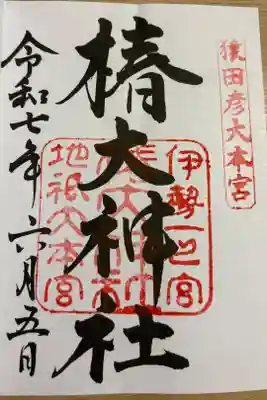 猿田彦大本宮
椿大神社
伊勢一之宮
地祇大本宮
令和七年六月五日